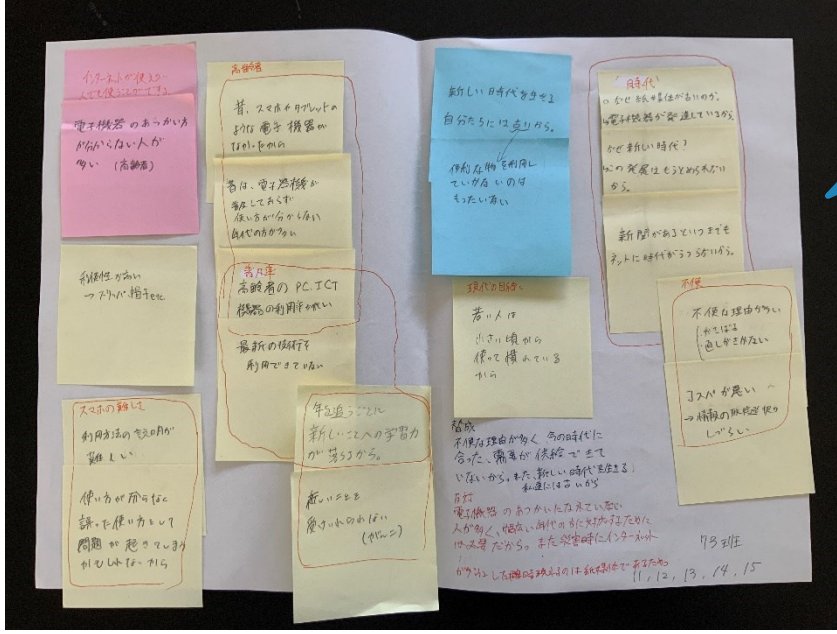 インターネットが使えない
人でも使うことができる
電子機器のあつかい方
が分からない人が
多い (高齢者)
利便性が高い
→スリッパ・帽子など
スマホの難しさ
利用方法の説明が
難しい
使い方が分らなく
誤った使い方をして
問題が起きてしまう
かもしれないから
高齢者
昔、スマホやタブレットの
ような電子機器が
なかったから
昔は、電子機器が
普及しておらず
使い方が分からない
年代の方が多い
普及率
高齢者のPC、ICT
機器の利用率が低い
最新の技術を
利用できてない
年を追うごとに
新しいことへの学習力
が落ちるから。
新しいことを
受けいれのれない
(がんこ)
新しい時代を生きる
自分たちには古いから。
便利な物を利用し
ていかないのは
もったいない
時代
なぜ紙媒体が古いのか。
→電子機器が発達しているから。
なぜ新しい時代?
の発展はもうとめられない
から。
新聞があるといつまでも
ネットに時代がうつらないから。
現代の
若い人は
小さい頃から
使って慣れている
から
不便
不便な理由が多い
かさばる
直しがきかない
コスパが悪い
→情報の取捨選択が
しづらい
賛成
不便な理由が多く 今の時代に
合った、需要が供給できて
いないから。また、新しい時代を生きる
私達には古いから
反対
電子機器のあつかいになれていない
人が多く、幅広い年代の方に対応するために
必要だから。また災害時にインターネット
がダウンした時は紙媒体であるため。
73班
11, 12, 13, 14, 15